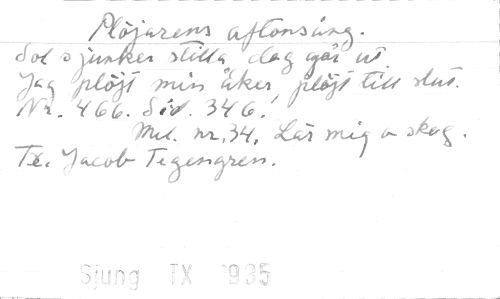 Plöjarens aftonsång.
Sol sjunker stilla, dag går ut
Jag plöjt min åker, plöjt till slut.
Nr. 466. Sid. 346.
Mel. nr. 34, Lär mig o skog.
Tx. Jacob Tegengren.
Sjung TX 1935